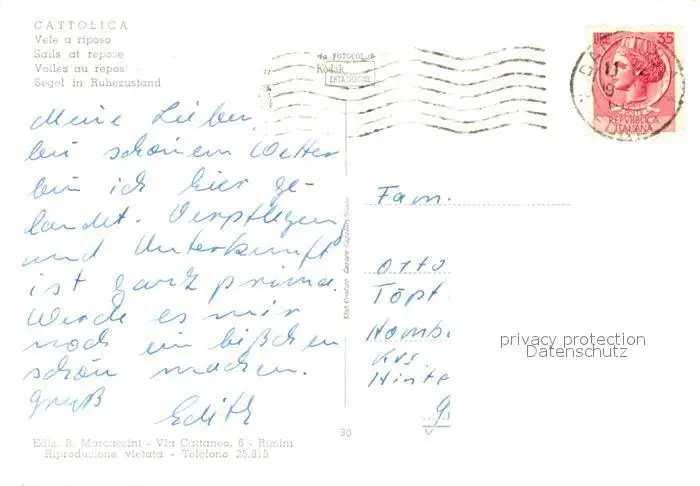 CATTOLICA
Vele a riposo
Sails at repose
Voiles au repos
Segel in Ruhezustand
da FOTOCOLOR
Kodak
EKTACHROME
LIRE 35
REPVBBLICA
ITALIANA
Meine Lieben,
bei schönem Wetter
bin ich hier ge-
landet. Verpflegung
und Unterkunft
ist ganz prima.
Werde es mir
noch ein bißchen
schön machen.
Gruß
Edith
Fam.
Otto
Töpf
Hombu
Krs.
Hinte
privacy protection
Datenschutz
Ediz. B. Marcaccini - Via Cattaneo, 6 - Rimini
Riproduzione vietata - Telefono 25.815
30